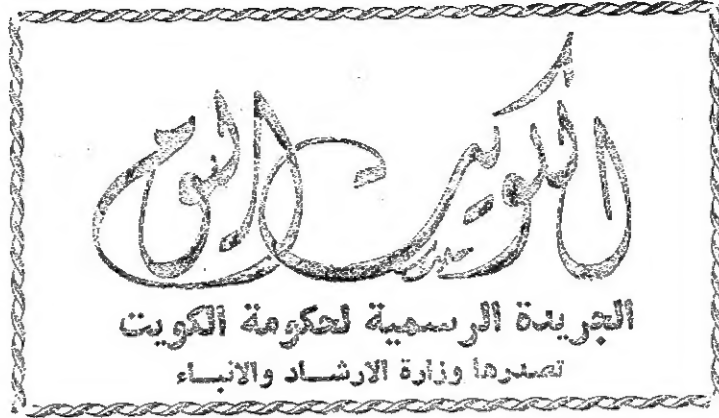 الكويت اليوم
الجريدة الرسمية لحكومة الكويت
تصدرها وزارة الارشاد والانباء